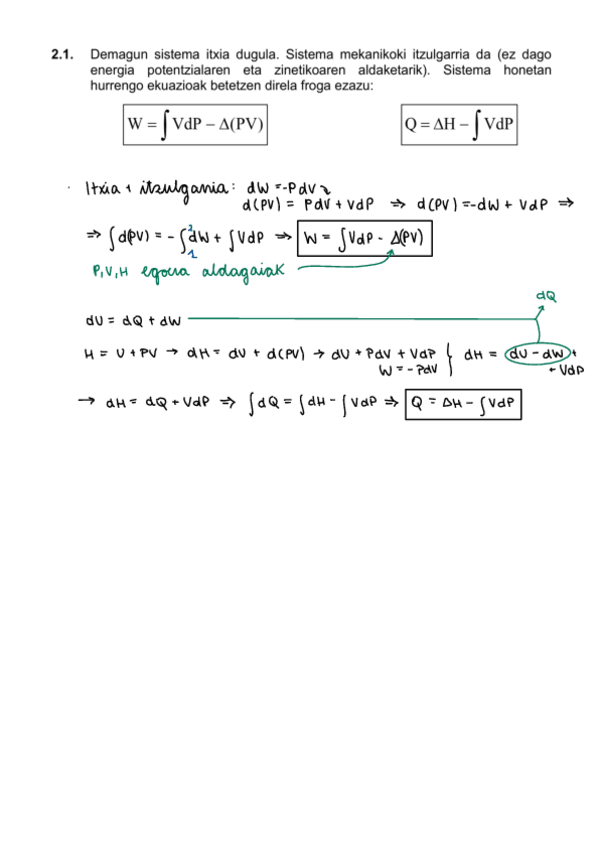 2.1. Demagun sistema itxia dugula. Sistema mekanikoki itzulgarria da (ez dago
energia potentzialaren eta zinetikoaren aldaketarik). Sistema honetan
hurrengo ekuazioak betetzen direla froga ezazu:
W = ∫ VdP − Δ(PV)
Q = ΔH − ∫ VdP
· Itxia + itzulgarria: dW = -PdV
d(PV) = PdV + VdP ⇒ d(PV) = -dW + VdP ⇒
⇒ ∫d(PV) = - ∫₁² dW + ∫VdP ⇒ W = ∫VdP - Δ(PV)
P, V, H egoera aldagaiak
dQ
dU = dQ + dW
H = U + PV → dH = dU + d(PV) → dU + PdV + VdP } dH = dU - dW +
W = - PdV
+ VdP
→ dH = dQ + VdP ⇒ ∫dQ = ∫dH - ∫VdP ⇒ Q = ΔH - ∫VdP